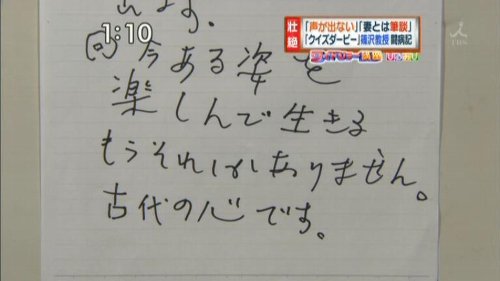 1:10
壮絶
「声が出ない」「妻とは筆談」
「クイズダービー」篠沢教授 闘病記
TBS
ます。
今ある姿を
楽しんで生きる
もうそれしかありません。
古代の心です。